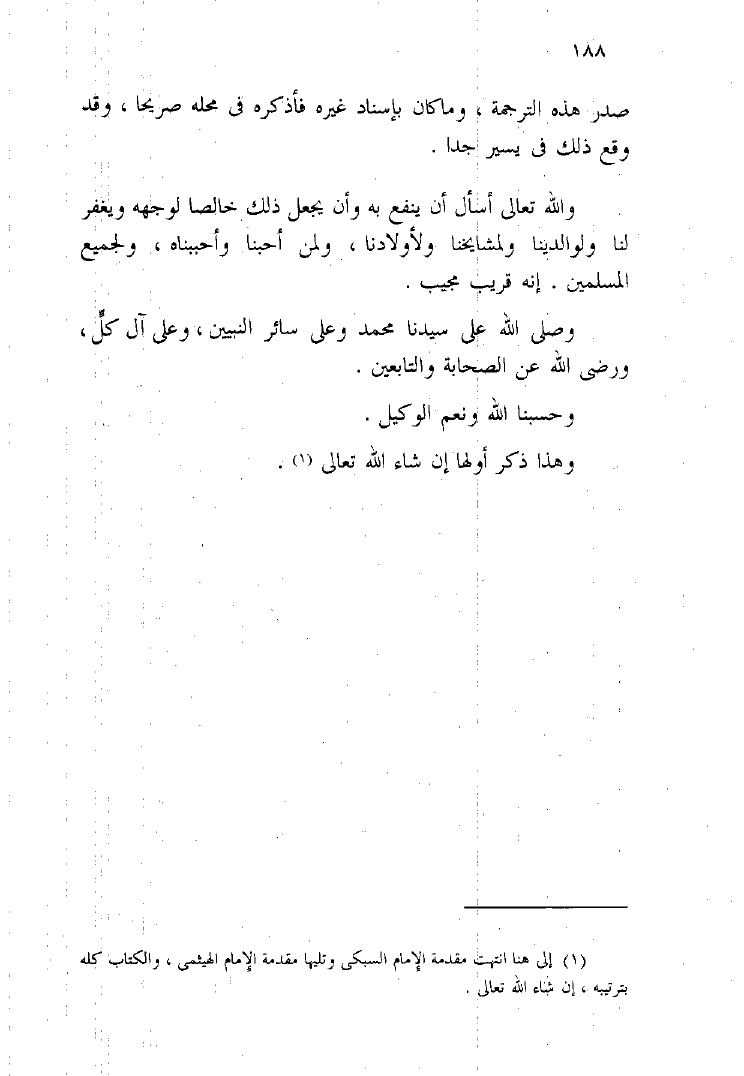 ١٨٨
صدر هذه الترجمة ، وماكان بإسناد غيره فأذكره فى محله صريحا ، وقد
وقع ذلك فى يسير جدا .
والله تعالى أسأل أن ينفع به وأن يجعل ذلك خالصا لوجهه ويغفر
لنا ولوالدينا ولمشايخنا ولأولادنا ، ولمن أحبنا وأحببناه ، ولجميع
المسلمين . إنه قريب مجيب .
وصلى الله على سيدنا محمد وعلى سائر النبيين ، وعلى آل كلٍّ ،
ورضى الله عن الصحابة والتابعين .
وحسبنا الله ونعم الوكيل .
وهذا ذكر أولها إن شاء الله تعالى (١) .
(١) إلى هنا انتهت مقدمة الإمام السبكى وتليها مقدمة الإمام الهيثمى ، والكتاب كله
بترتيبه ، إن شاء الله تعالى .